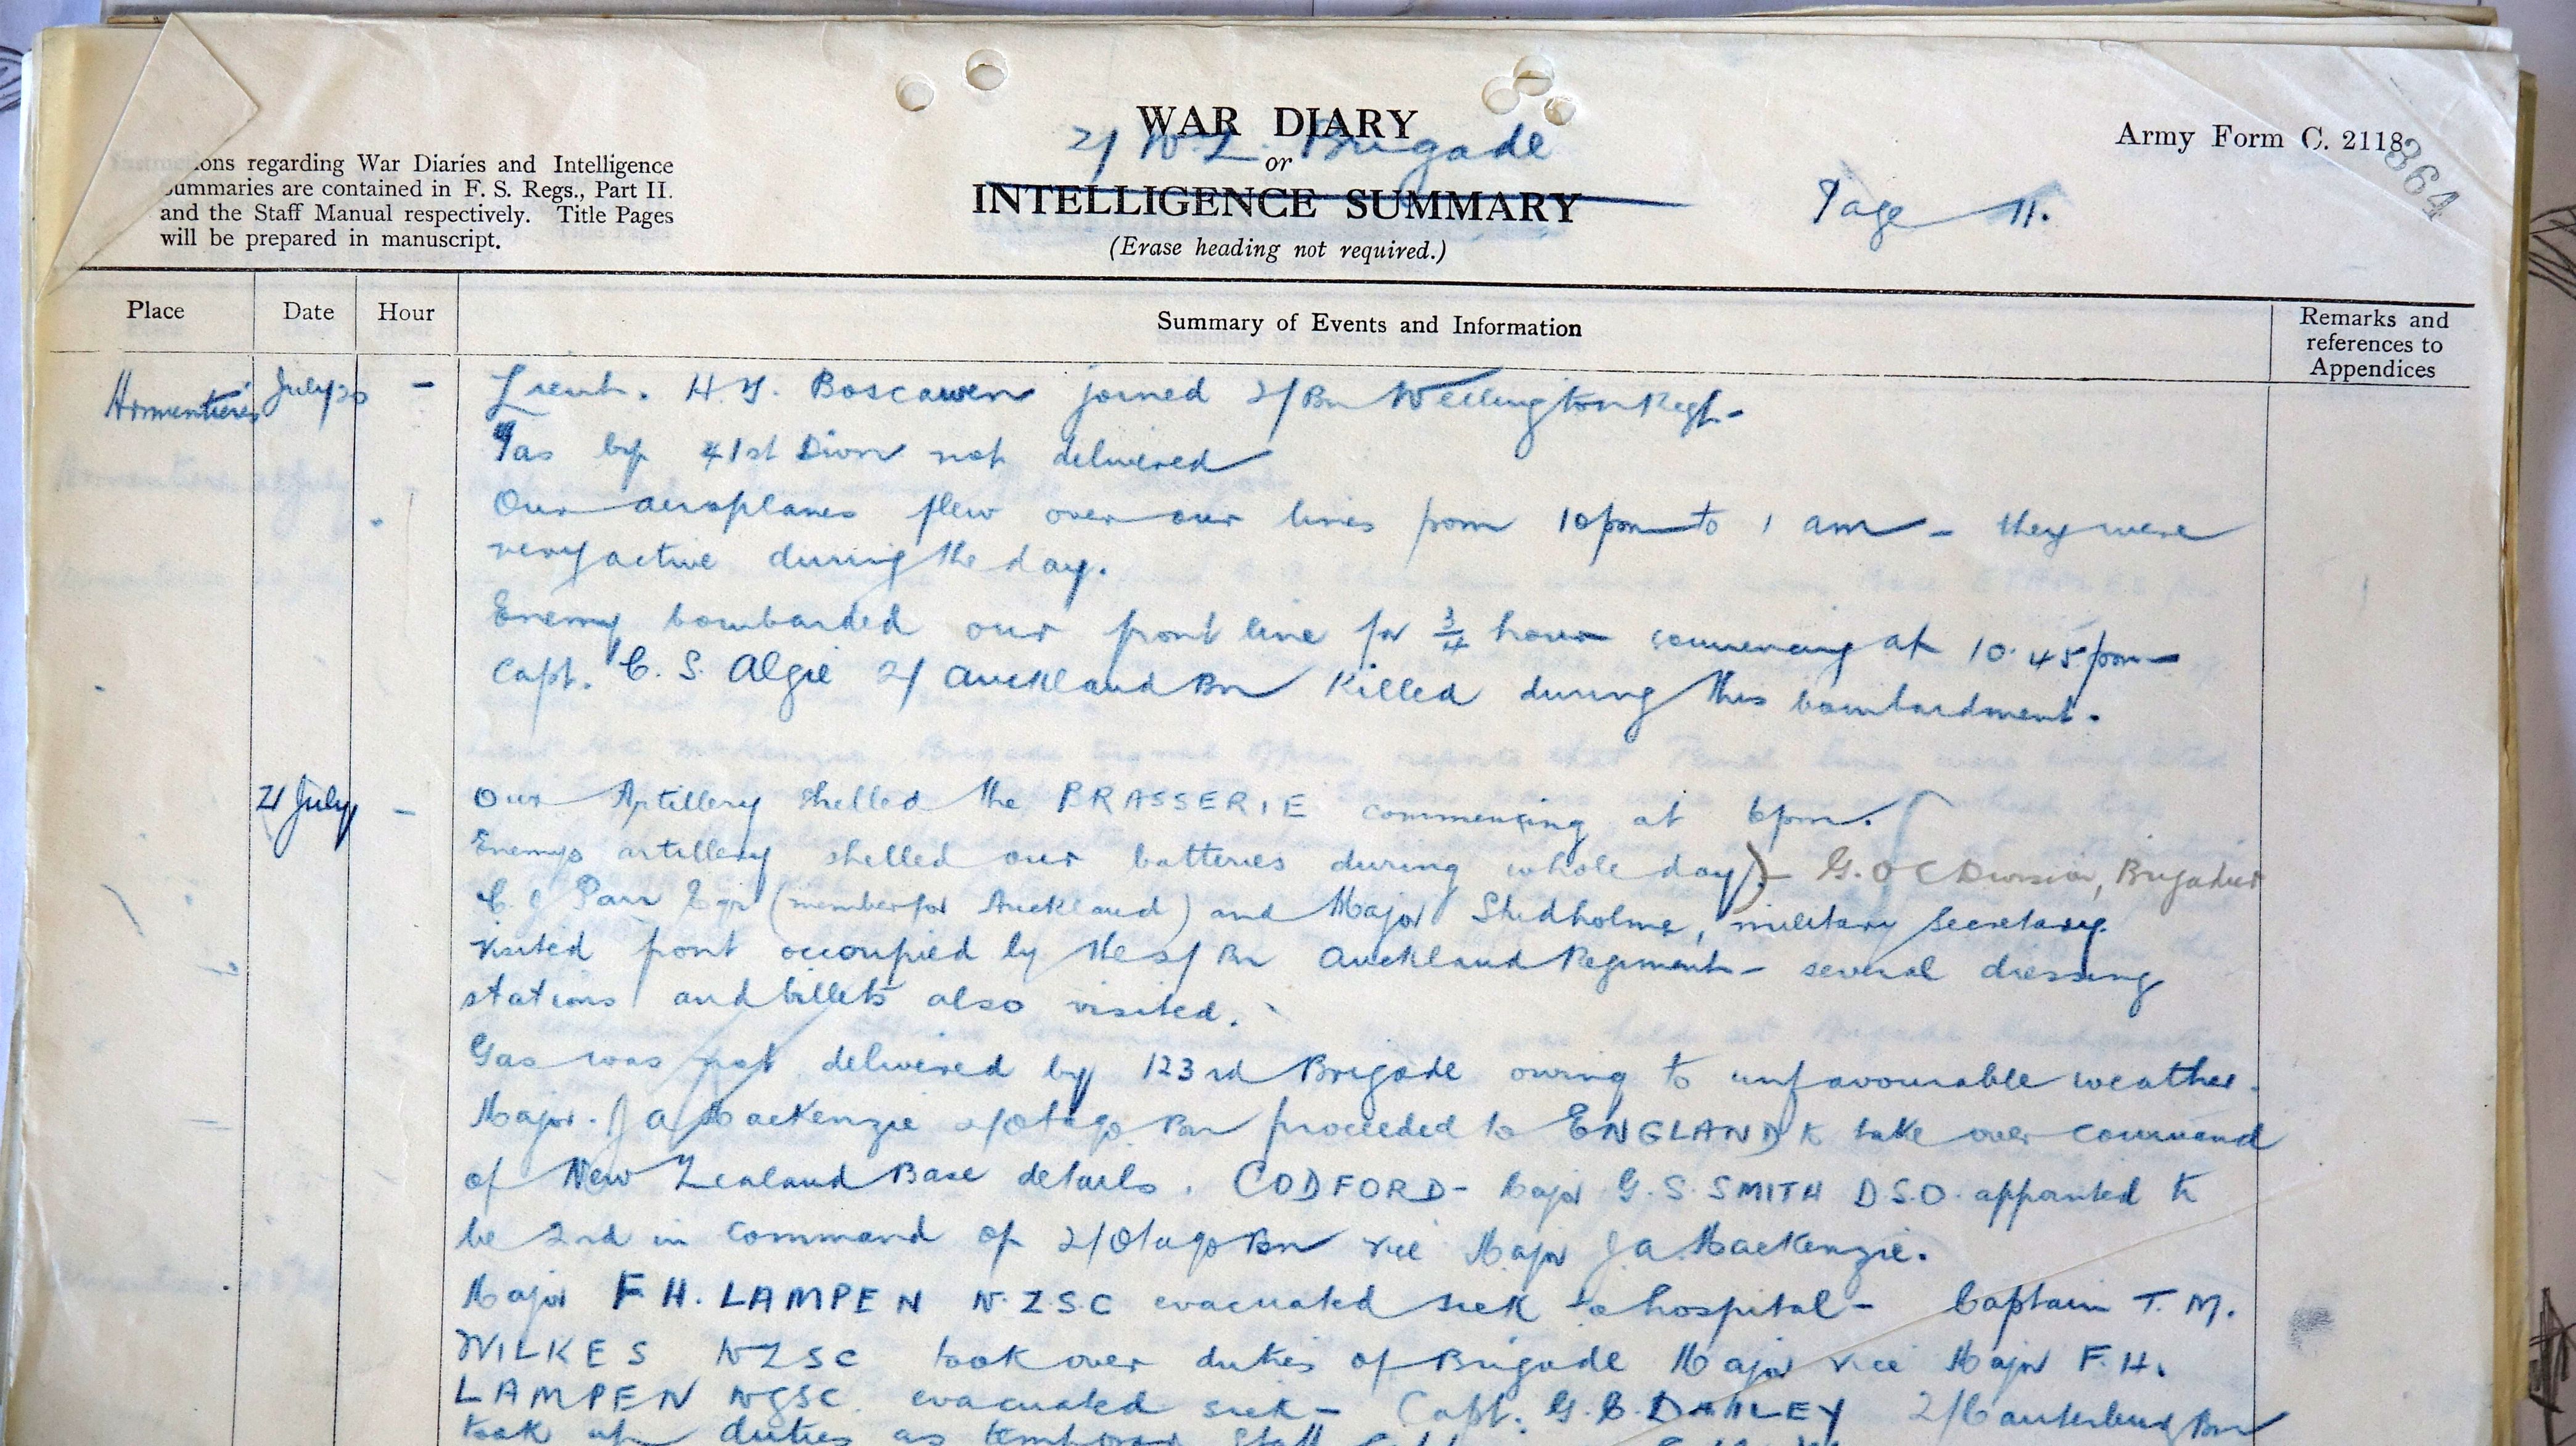 WAR DIARY
2/ N.Z. Brigade
or
INTELLIGENCE SUMMARY
(Erase heading not required.)
Army Form C. 2118.
364
Page 11.
ons regarding War Diaries and Intelligence
Summaries are contained in F. S. Regs., Part II.
and the Staff Manual respectively. Title Pages
will be prepared in manuscript.
Place Date Hour Summary of Events and Information Remarks and references to Appendices
Armentieres July 20 - Lieut. H. Y. Boscawen joined 2/Bn Wellington Regt-
Gas by 41st Divn not delivered
Our aeroplanes flew over our lines from 10pm to 1 am - they were
very active during the day.
Enemy bombarded our front line for 3/4 hour commencing at 10.45pm -
Capt. C. S. Algie 2/ Auckland Bn Killed during this bombardment.
21 July - Our Artillery shelled the BRASSERIE commencing at 6pm.
Enemys artillery shelled our batteries during whole day) - G.O C Division, Brigadier
C. J Parr Esqr (member for Auckland) and Major Studholme, military Secretary.
visited front occupied by the Bn Auckland Regiment - several dressing
stations and billets also visited.
Gas was not delivered by 123rd Brigade owing to unfavourable weather.
Major. J A MacKenzie 2/Otago Bn proceeded to ENGLAND to take over command
of New Zealand Base details. CODFORD - Major G. S. SMITH D.S.O. appointed to
be 2nd in command of 2/Otago Bn vice Major J. A. MacKenzie.
Major F. H. LAMPEN N.Z.S.C evacuated sick to hospital - Captain T. M.
WILKES NZSC took over duties of Brigade Major vice Major F. H.
LAMPEN NZSC. evacuated sick - Capt. G. C. DAILEY 2/Canterbury Bn
took up duties as temporary Staff